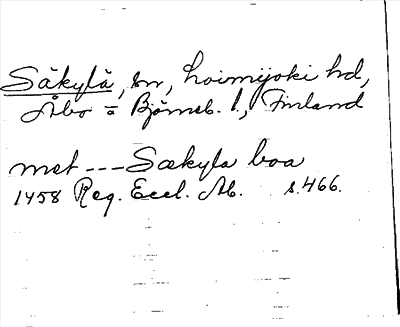 Säkylä, sn, Loimijoki hd,
Åbo = Björneb. l, Finland
met --- Sækyla boa
1458 Reg. Eccl. Ab. s. 466.